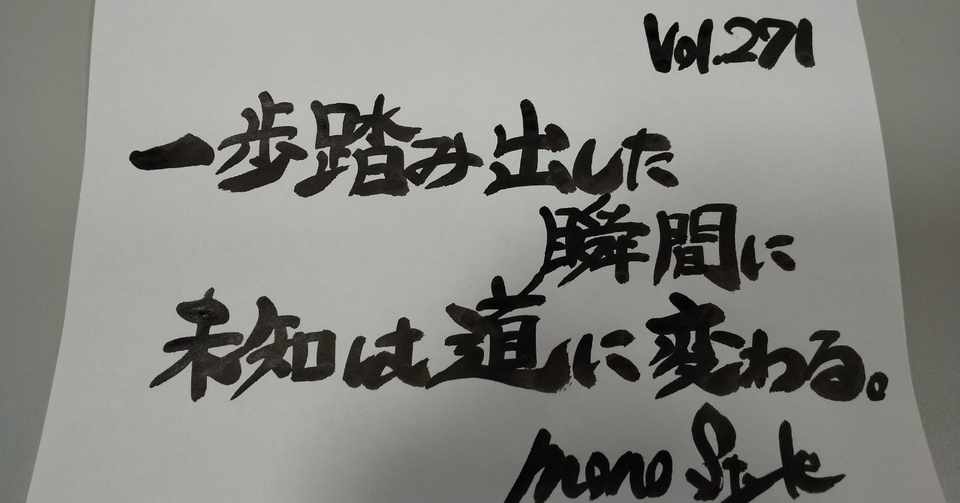 Vol.271
一歩踏み出した
瞬間に
未知は道に変わる。
mono Style